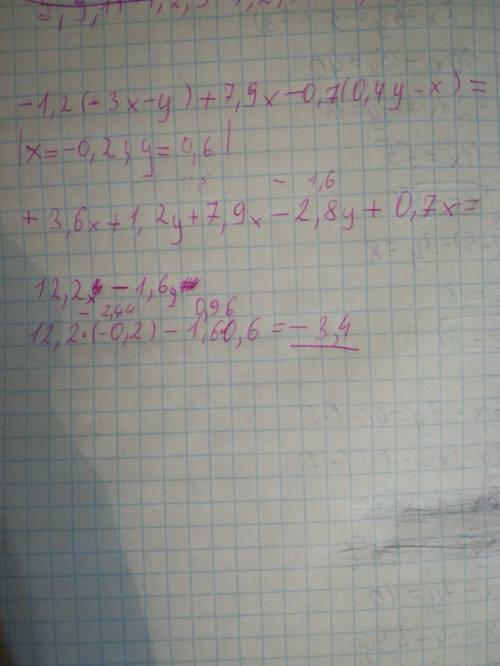 -1,2(-3x-y)+7,9x-0,7(0,4y-x)=
|x=-0,2; y=0,6|
- 1,6
+3,6x+1,2y+7,9x-2,8y+0,7x=
12,2x-1,6y
-2,44 0,96
12,2·(-0,2)-1,6·0,6=-3,4